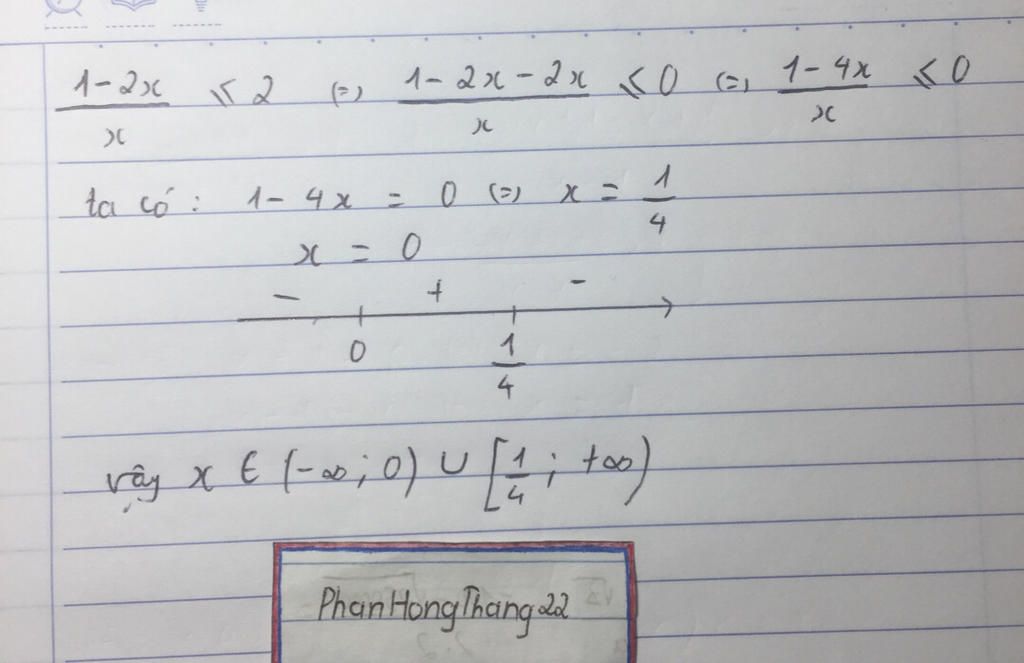 1-2x/x ≤ 2 (=) 1-2x-2x/x ≤ 0 (=) 1-4x/x ≤ 0
ta có: 1-4x = 0 (=) x = 1/4
x = 0
- + -
0 1/4
vậy x ∈ (-∞; 0) ∪ [1/4; +∞)
PhanHongThang22